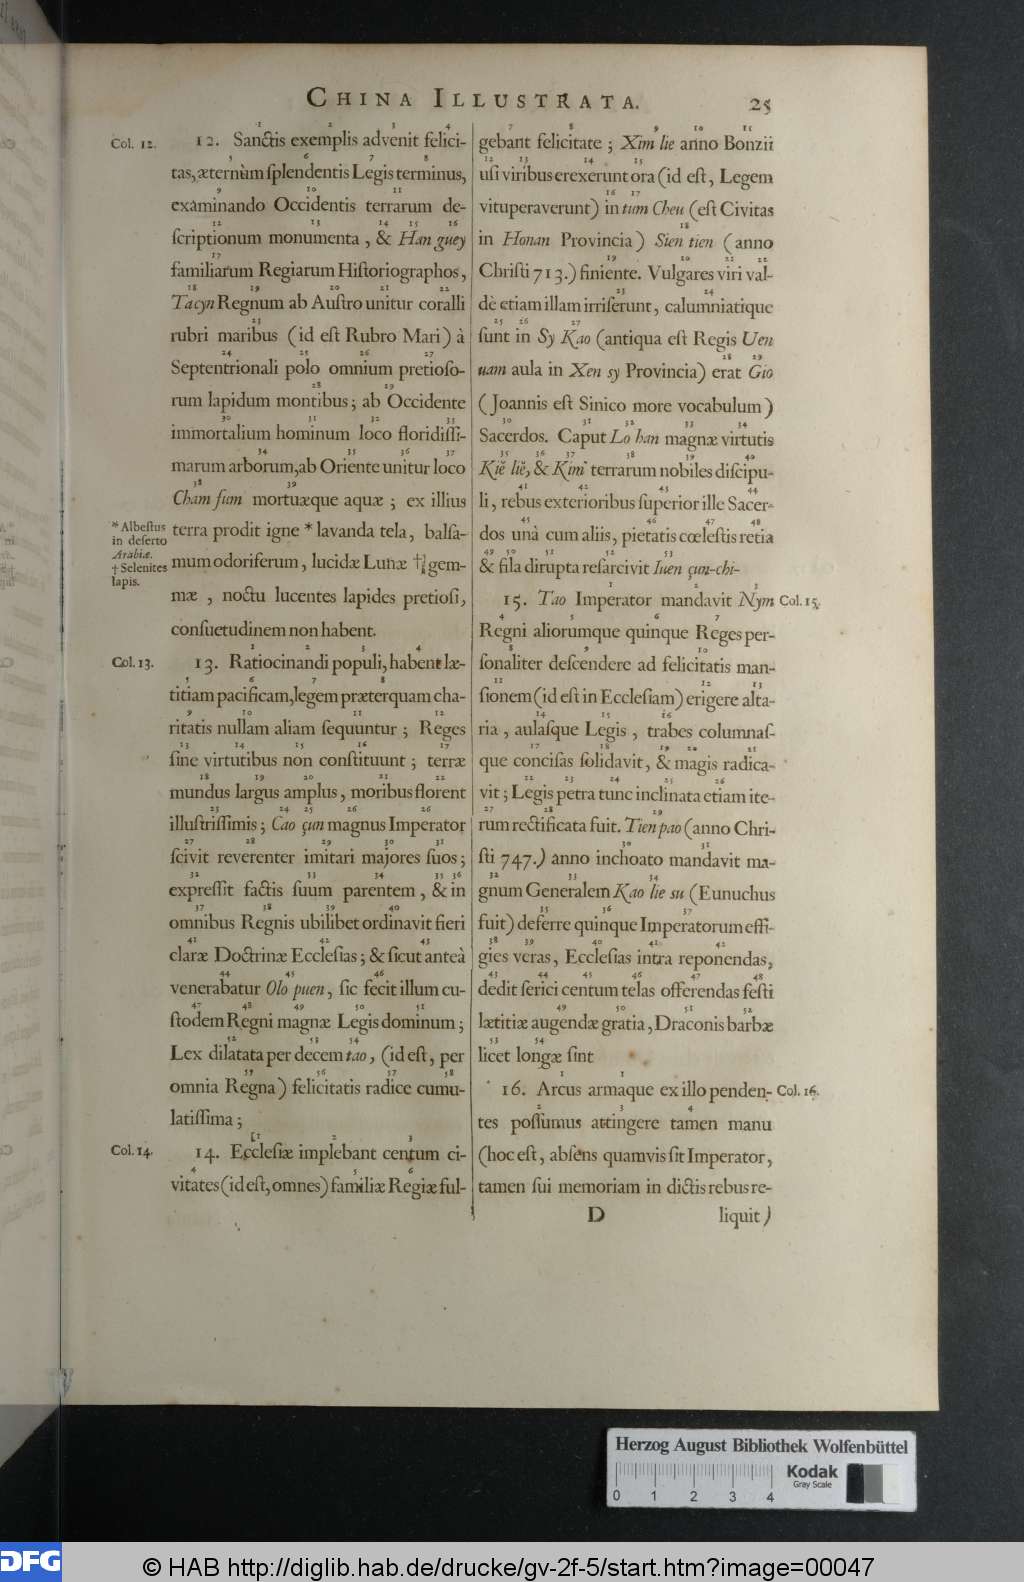 CHINA ILLUSTRATA. 25
Col. 12. 12. Sanctis exemplis advenit felici-
tas, æternùm ſplendentis Legis terminus,
examinando Occidentis terrarum de-
ſcriptionum monumenta, & Han guey
familiarum Regiarum Hiſtoriographos,
Tacyn Regnum ab Auſtro unitur coralli
rubri maribus (id eſt Rubro Mari) à
Septentrionali polo omnium pretioſo-
rum lapidum montibus; ab Occidente
immortalium hominum loco floridiſſi-
marum arborum, ab Oriente unitur loco
Cham ſum mortuæque aquæ; ex illius
terra prodit igne * lavanda tela, balſa-
mum odoriferum, lucidæ Lunæ † gem-
mæ, noctu lucentes lapides pretioſi,
conſuetudinem non habent.
* Albeſtus
in deſerto
Arabiæ.
† Selenites
lapis.
Col. 13. 13. Ratiocinandi populi, habent læ-
titiam pacificam, legem præterquam cha-
ritatis nullam aliam ſequuntur; Reges
ſine virtutibus non conſtituunt; terræ
mundus largus amplus, moribus florent
illuſtriſſimis; Cao çun magnus Imperator
ſcivit reverenter imitari majores ſuos;
expreſſit factis ſuum parentem, & in
omnibus Regnis ubilibet ordinavit fieri
claræ Doctrinæ Eccleſias; & ſicut anteà
venerabatur Olo puen, ſic fecit illum cu-
ſtodem Regni magnæ Legis dominum;
Lex dilatata per decem tao, (id eſt, per
omnia Regna) felicitatis radice cumu-
latiſſima;
Col. 14. 14. Eccleſiæ implebant centum ci-
vitates (id eſt, omnes) familiæ Regiæ ful-
gebant felicitate; Xim lie anno Bonzii
uſi viribus erexerunt ora (id eſt, Legem
vituperaverunt) in tum Cheu (eſt Civitas
in Honan Provincia) Sien tien (anno
Chriſti 713.) finiente. Vulgares viri val-
dè etiam illam irriſerunt, calumniatique
ſunt in Sy Kao (antiqua eſt Regis Uen
uam aula in Xen sy Provincia) erat Gio
(Joannis eſt Sinico more vocabulum)
Sacerdos. Caput Lo han magnæ virtutis
Kiĕ liĕ, & Kim terrarum nobiles diſcipu-
li, rebus exterioribus ſuperior ille Sacer-
dos unà cum aliis, pietatis cœleſtis retia
& fila dirupta reſarcivit Iuen çun-chi-
15. Tao Imperator mandavit Nym Col. 15.
Regni aliorumque quinque Reges per-
ſonaliter deſcendere ad felicitatis man-
ſionem (id eſt in Eccleſiam) erigere alta-
ria, aulaſque Legis, trabes columnaſ-
que conciſas ſolidavit, & magis radica-
vit; Legis petra tunc inclinata etiam ite-
rum rectificata fuit. Tien pao (anno Chri-
ſti 747.) anno inchoato mandavit ma-
gnum Generalem Kao lie su (Eunuchus
fuit) deferre quinque Imperatorum effi-
gies veras, Eccleſias intra reponendas,
dedit ſerici centum telas offerendas feſti
lætitiæ augendæ gratia, Draconis barbæ
licet longæ ſint
16. Arcus armaque ex illo penden- Col. 16.
tes poſſumus attingere tamen manu
(hoc eſt, abſens quamvis ſit Imperator,
tamen ſui memoriam in dictis rebus re-
D liquit)
Herzog August Bibliothek Wolfenbüttel
0 1 2 3 4
Kodak
Gray Scale
DFG
© HAB http://diglib.hab.de/drucke/gv-2f-5/start.htm?image=00047